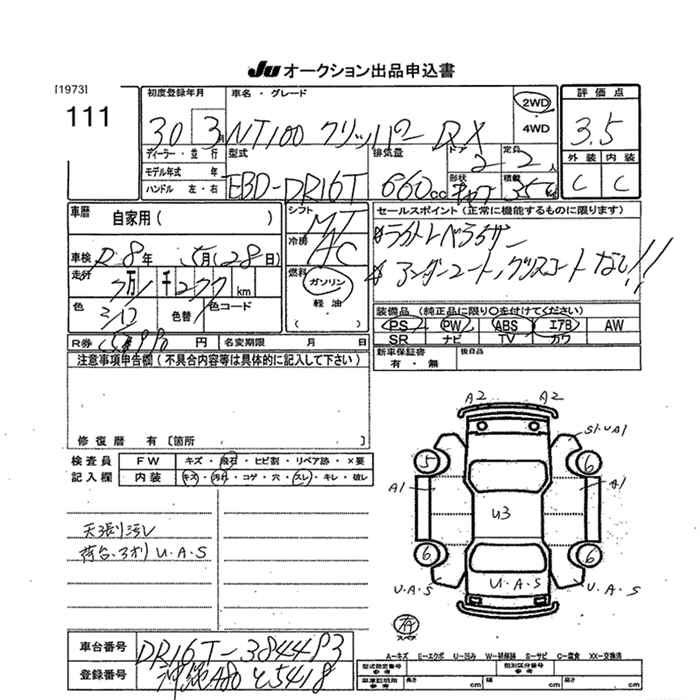 Ju オークション出品申込書
[1973]
111
初度登録年月
30 3月
車名・グレード
NT100 クリッパー DX
2WD
4WD
評価点
3.5
外装 内装
C C
ディーラー・並行
モデル年式 年
ハンドル 左・右
型式
EBD-DR16T
排気量
660cc
ドア 2
定員 2人
形状
積載 350kg
車歴
自家用( )
シフト MT
冷房 AC
車検 R8年 5月28日
走行 万 千 277km
燃料
ガソリン
軽油
( )
色
色替
色コード
セールスポイント(正常に機能するものに限ります)
#ライトレベライザー
#アンダーコート,グリスコートなし!!
装備品(純正品に限り○を付けてください)
PS PW ABS エアB AW
SR ナビ TV カワ
R券 円
名変期限 月 日
新車保証書
有・無
後良品
注意事項申告欄(不具合内容等は具体的に記入して下さい)
修復歴 有〔箇所
検査員
記入欄
FW キズ・飛石・ヒビ割・リペア跡・×要
内装 キズ・汚れ・コゲ・穴・スレ・キレ・破レ
天張り汚レ
荷台、アオリ U・A・S
A2 A2
S1・UA1
5 6
A1 A1
U3
6 6
U・A・S U・A・S U・A・S
スペア
A-キズ E-エクボ U-凹み W-補修跡 S-サビ C-腐食 XX-交換済
車台番号 DR16T-384493
登録番号 沖縄 A80 と5418
型式指定番号
参考
類別区分番号
参考
車庫証明用
参考
長さ cm 幅 cm 高さ cm